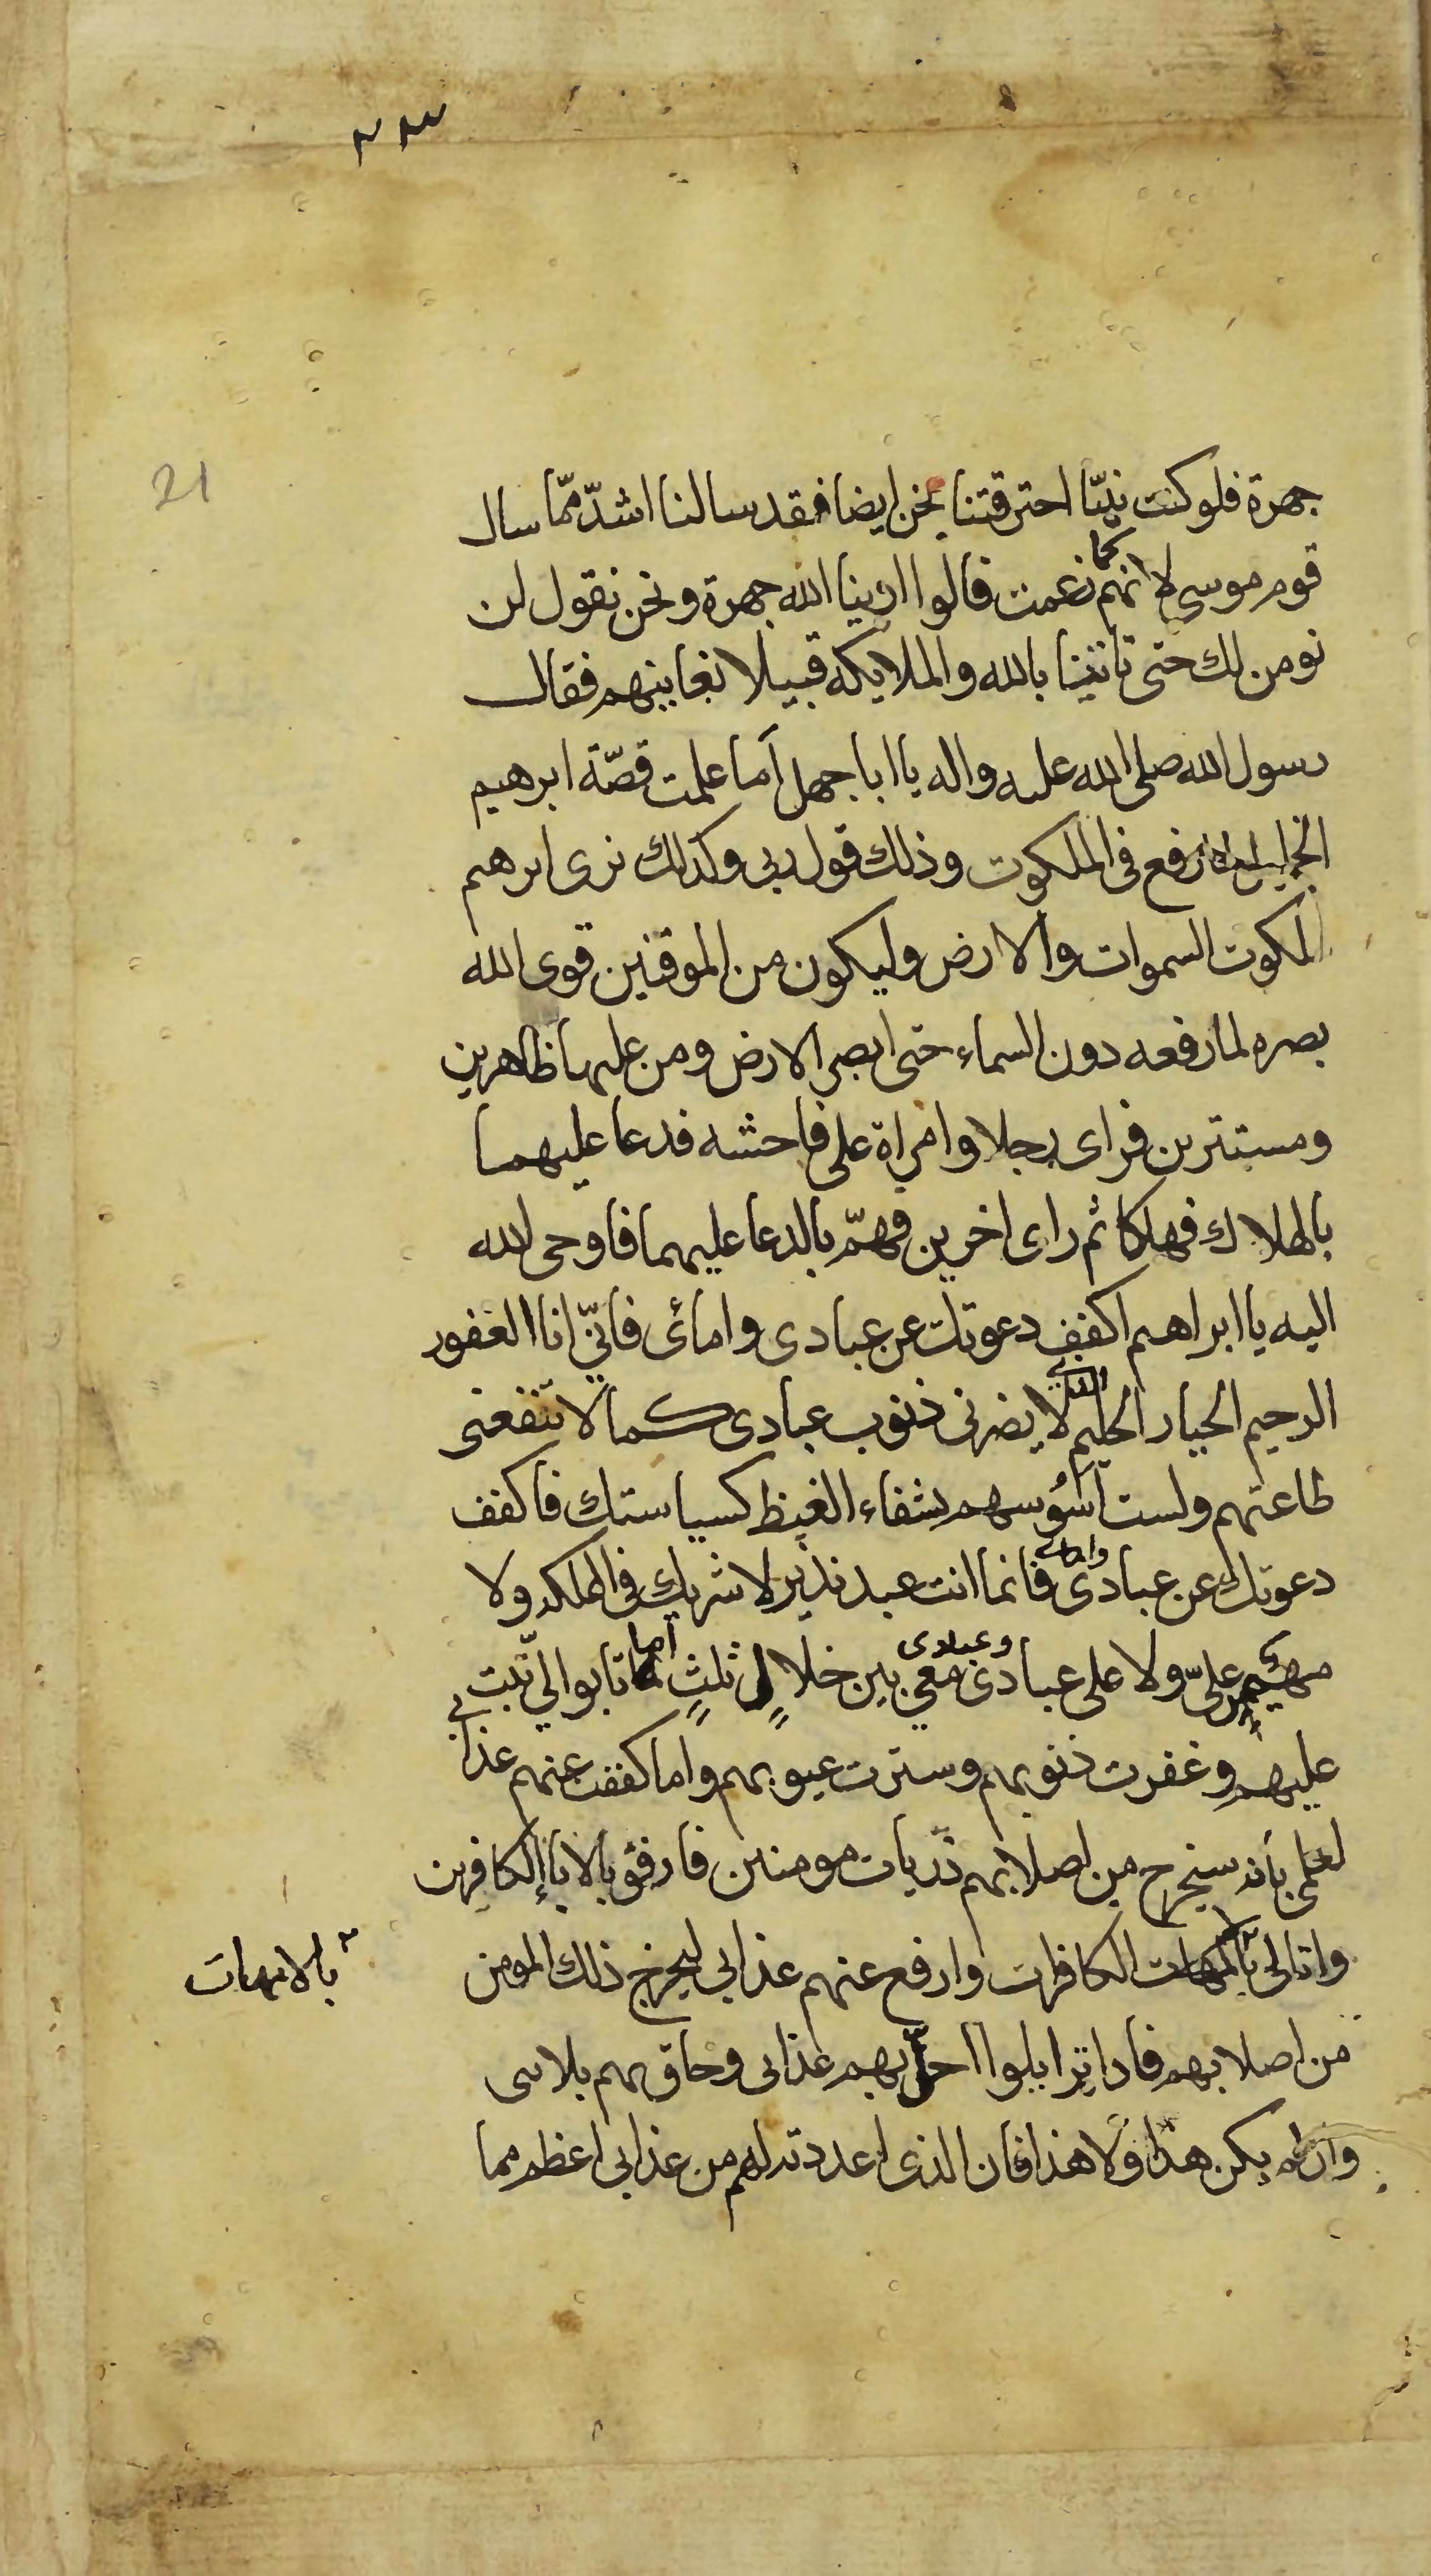 ٢٣
21
جهرة فلو كنت نبيّا احترقتنا نحن ايضا فقد سالنا اشدّ ممّا سال
قوم موسى لانهم كما زعمت قالوا ارينا الله جهرة ونحن نقول لن
نومن لك حتى تاتينا بالله والملايكه قبيلا نعاينهم فقال
رسول الله صلى الله عليه واله يا ابا جهل أما علمت قصّة ابرهيم
الخليل لما رفع فى الملكوت وذلك قول ربى وكذلك نرى ابرهيم
ملكوت السموات والارض وليكون من الموقنين قوى الله
بصره لما رفعه دون السماء حتى ابصر الارض ومن عليها ظاهرين
ومستترين فراى رجلا وامراة على فاحشه فدعا عليهما
بالهلاك فهلكا ثم راى اخرين فهمّ بالدعا عليهما فاوحى الله
اليه يا ابراهيم اكفف دعوتك عن عبادى وامائى فانّي انا الغفور
الرحيم الجبار الحليم لا يضرنى ذنوب عبادى كما لا تنفعنى
طاعتهم ولست أسُوسهم بشفاء الغيظ كسياستك فاكفف
دعوتك عن عبادى وامائى فانما انت عبد نذير لا شريك فى المملكه ولا
مهيمن علىّ ولا على عبادى وعبادى معي بين خلالٍ ثلثٍ اما تابوا اليّ تبت
عليهم وغفرت ذنوبهم وسترت عيوبهم واما كففت عنهم عذابي
لعلمى بأنه سيخرج من اصلابهم ذرّيات مومنين فارفق بالاباء الكافرين
واتانى بالامهات الكافرات وارفع عنهم عذابى ليخرج ذلك المومن
بالامهات
من اصلابهم فاذا تزايلوا احلّ بهم عذابى وحاق بهم بلائى
وان لم يكن هذا ولا هذا فان الذى اعددته لهم من عذابى اعظم مما